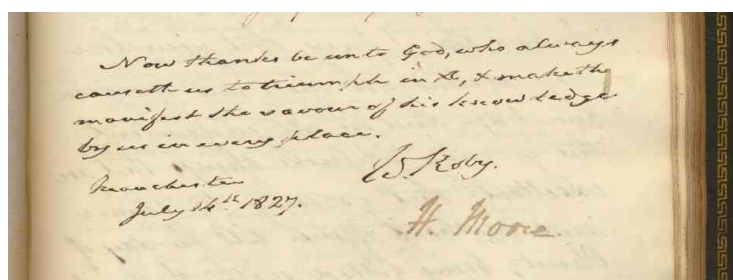 Now thanks be unto God, who always
causeth us to triumph in X, & maketh
manifest the savour of his knowledge
by us in every place.
W. Roby.
Manchester
July 14th 1827.
H. Moore